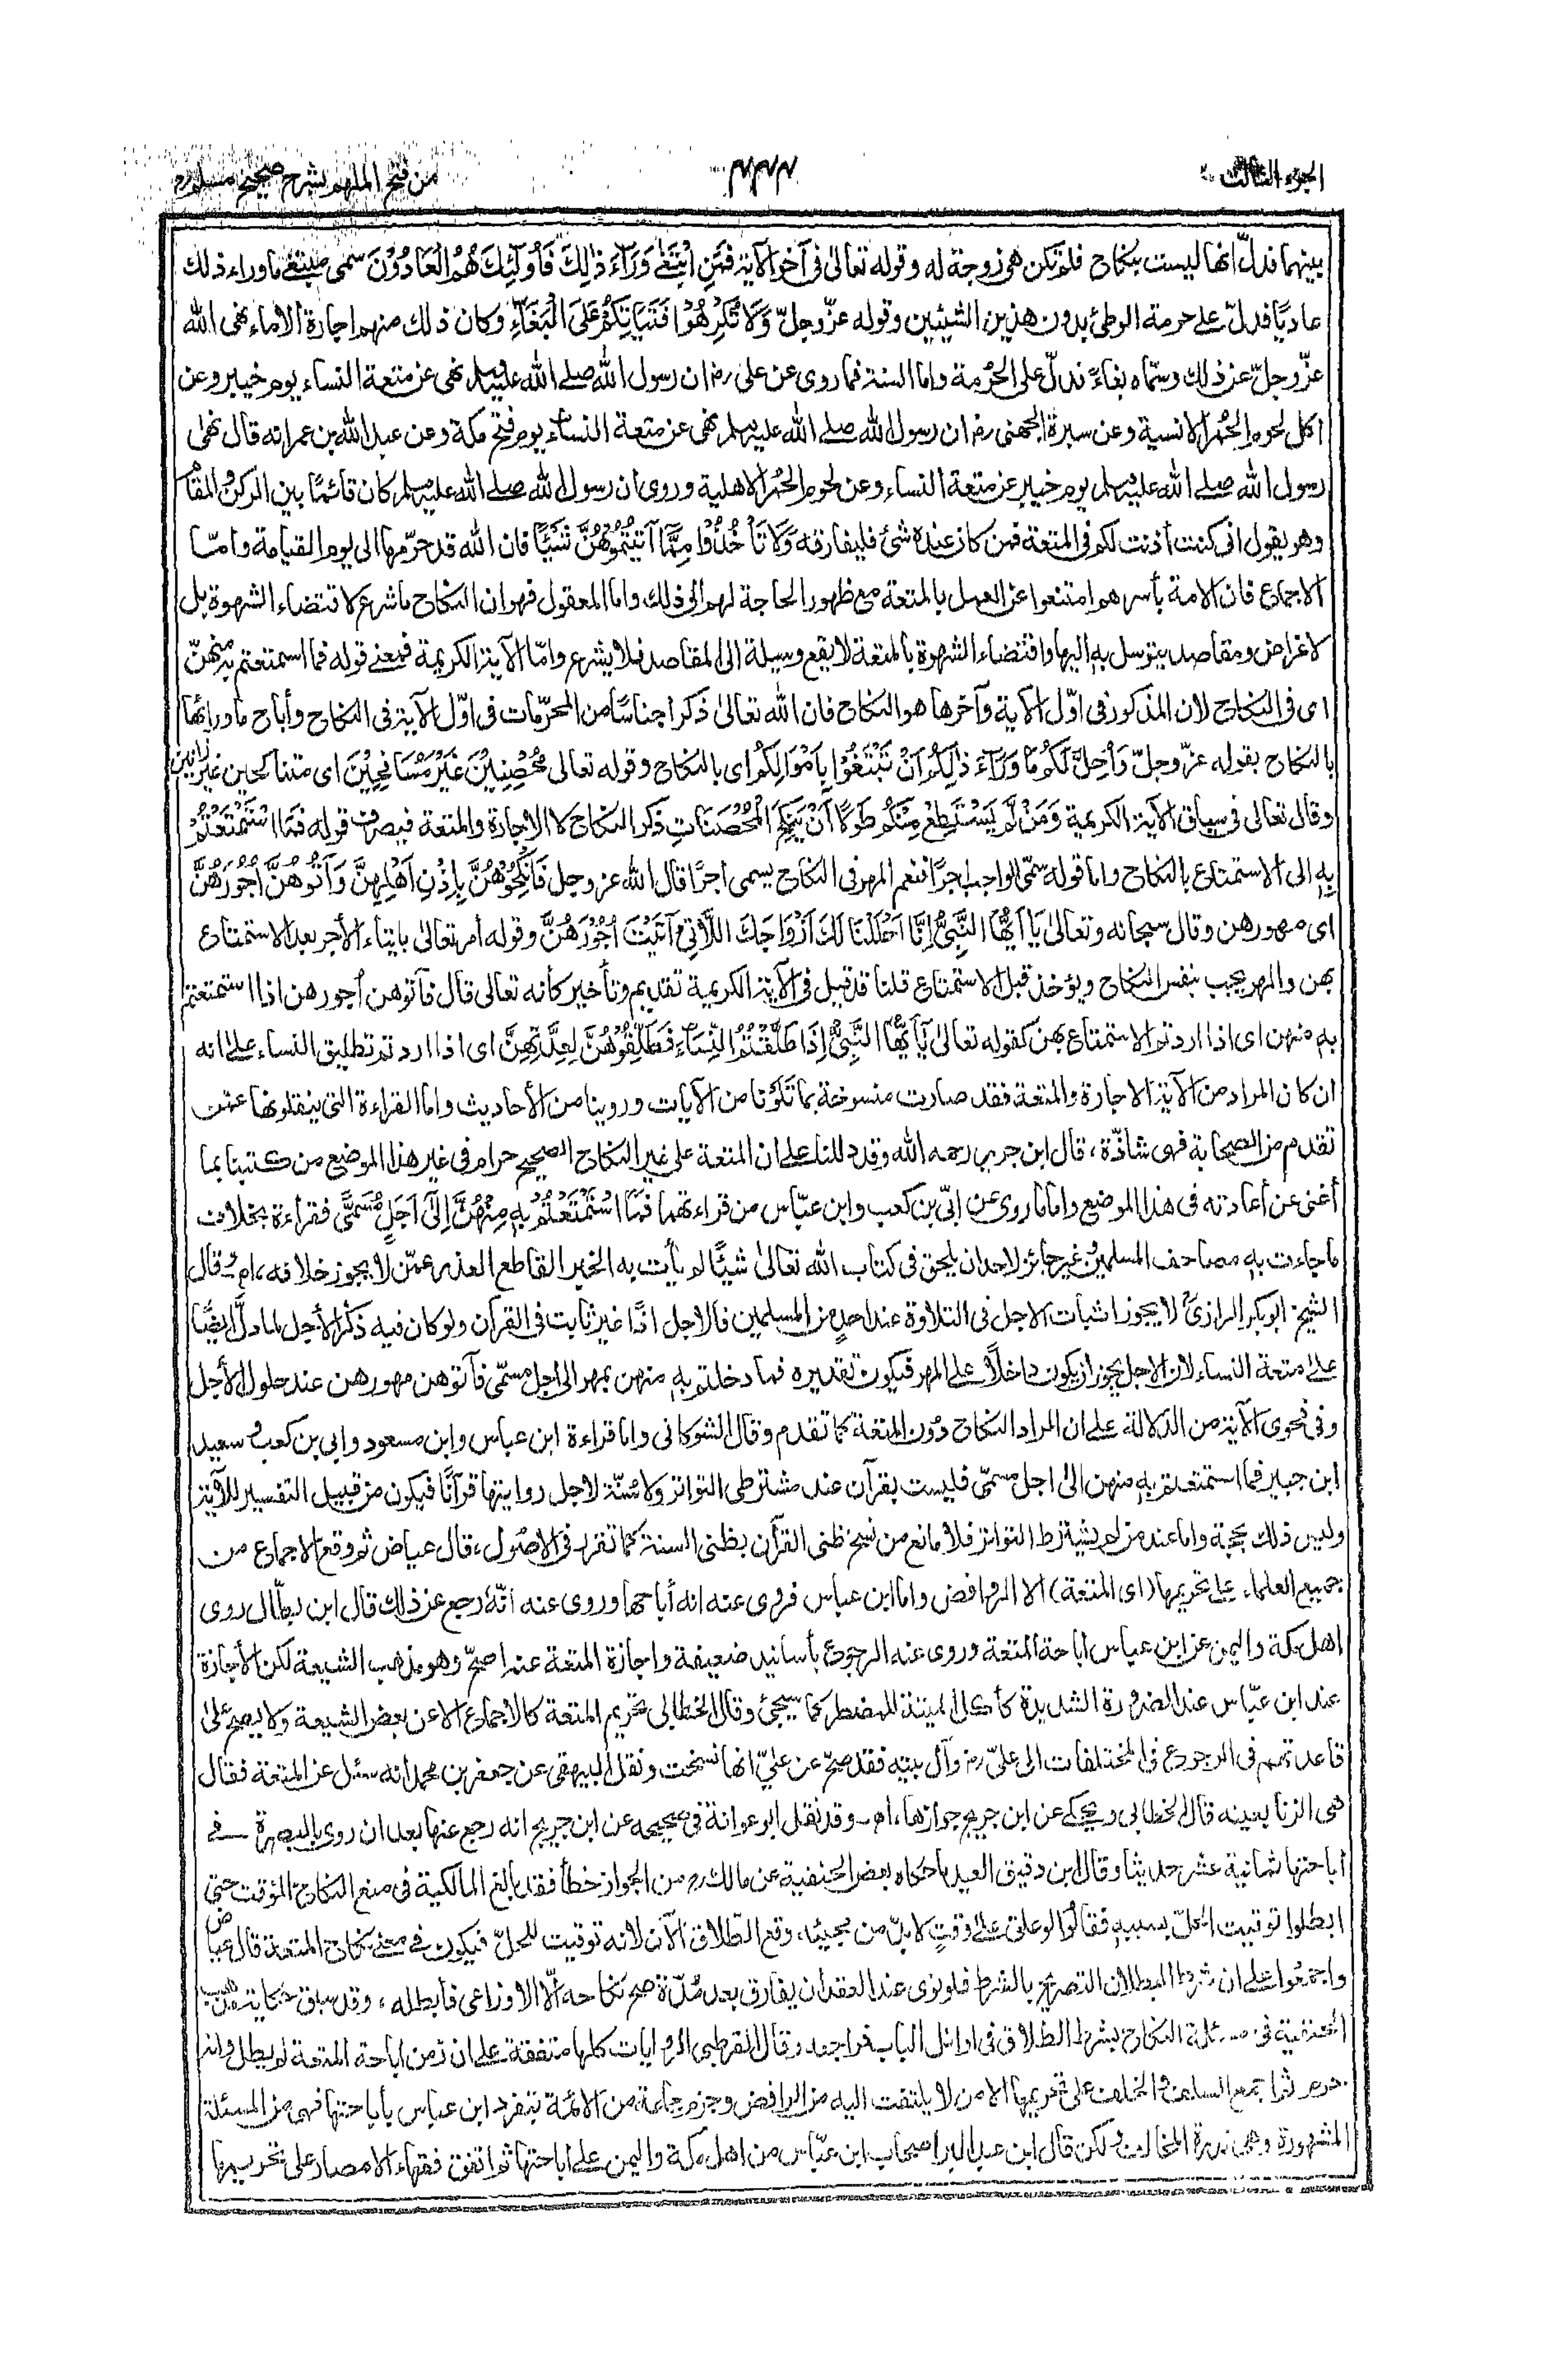 الجزء الثالث
٤٤٤
من فتح الملهم بشرح صحيح مسلم
بينهما فدلّ انها ليست بنكاح فلم تكن هى زوجة له وقوله تعالى فى آخر الآية فَمَنِ ابْتَغَىٰ وَرَآءَ ذٰلِكَ فَأُولٰٓئِكَ هُمُ الْعَادُوْنَ سمى مبتغى ما وراء ذلك
عاديًا فدلّ على حرمة الوطئ بدون هذين الشيئين وقوله عزّ وجلّ وَلَا تُكْرِهُوْا فَتَيَاتِكُمْ عَلَى الْبِغَآءِ وكان ذلك منهم اجارة الاماء نهى الله
عزّ وجلّ عن ذلك وسمّاه بغاءً فدلّ على الحُرمة واما السنة فما روى عن على رض ان رسول الله صلى الله عليه وسلم نهى عن متعة النساء يوم خيبر وعن
اكل لحوم الحُمُر الانسية وعن سبرة الجهنى رض ان رسول الله صلى الله عليه وسلم نهى عن متعة النساء يوم فتح مكة وعن عبد الله بن عمر انه قال نهى
رسول الله صلى الله عليه وسلم يوم خيبر عن متعة النساء وعن لحوم الحُمُر الاهلية وروى ان رسول الله صلى الله عليه وسلم كان قائمًا بين الركن والمقام
وهو يقول انى كنت أذنت لكم فى المتعة فمن كان عنده شئ فليفارقه وَلَا تَأْخُذُوْا مِمَّا آتَيْتُمُوْهُنَّ شَيْئًا فان الله قد حرّمها الى يوم القيامة وامّا
الاجماع فان الامة بأسرهم امتنعوا عن العمل بالمتعة مع ظهور الحاجة لهم الى ذلك واما المعقول فهو ان النكاح ما شرع لاقتضاء الشهوة بل
لاغراض ومقاصد يتوسل به اليها واقتضاء الشهوة بالمتعة لا يقع وسيلة الى المقاصد فلا يشرع وامّا الآية الكريمة فمعنى قوله فما استمتعتم به منهنّ
اى فى النكاح لان المذكور فى اوّل الآية وآخرها هو النكاح فان الله تعالىٰ ذكر اجناسًا من المحرّمات فى اوّل الآية فى النكاح وأباح ما ورائها
بالنكاح بقوله عزّ وجلّ وَأُحِلَّ لَكُمْ مَّا وَرَآءَ ذٰلِكُمْ أَنْ تَبْتَغُوْا بِأَمْوَالِكُمْ اى بالنكاح وقوله تعالى مُّحْصِنِيْنَ غَيْرَ مُسَافِحِيْنَ اى متناكحين غير زانين
وقال تعالى فى سياق الآية الكريمة وَمَنْ لَّمْ يَسْتَطِعْ مِنْكُمْ طَوْلًا أَنْ يَنْكِحَ الْمُحْصَنَاتِ ذكر النكاح لا الاجارة والمتعة فيصرف قوله فَمَا اسْتَمْتَعْتُمْ
بِهٖ الى الاستمتاع بالنكاح واما قوله سمّى الواجب اجرًا فنعم المهر فى النكاح يسمى اجرًا قال الله عز وجل فَانْكِحُوْهُنَّ بِإِذْنِ أَهْلِهِنَّ وَآتُوْهُنَّ أُجُوْرَهُنَّ
اى مهورهن وقال سبحانه وتعالىٰ يَا أَيُّهَا النَّبِيُّ إِنَّا أَحْلَلْنَا لَكَ أَزْوَاجَكَ اللَّاتِيْ آتَيْتَ أُجُوْرَهُنَّ وقوله أمر تعالىٰ بايتاء الأجر بعد الاستمتاع
بهن والمهر يجب بنفس النكاح ويؤخذ قبل الاستمتاع قلنا قد قيل فى الآية الكريمة تقديم وتأخير كأنه تعالى قال فآتوهن أجورهن اذا استمتعتم
به منهن اى اذا اردتم الاستمتاع بهن كقوله تعالىٰ يَآ أَيُّهَا النَّبِيُّ إِذَا طَلَّقْتُمُ النِّسَآءَ فَطَلِّقُوْهُنَّ لِعِدَّتِهِنَّ اى اذا اردتم تطليق النساء على انه
ان كان المراد من الآية الاجارة والمتعة فقد صارت منسوخة بما تَلَوْنا من الآيات وروينا من الأحاديث واما القراءة التى ينقلونها عمّن
تقدم من الصحابة فهى شاذّة، قال ابن جرير رحمه الله وقد دللنا على ان المتعة على غير النكاح الصحيح حرام فى غير هذا الموضع من كتبنا بما
أغنى عن أعادته فى هذا الموضع واما ما روى عن ابىّ بن كعب وابن عبّاس من قراءتهما فَمَا اسْتَمْتَعْتُمْ بِهٖ مِنْهُنَّ إِلٰى أَجَلٍ مُّسَمًّى فقراءة بخلاف
ما جاءت به مصاحف المسلمين وغير جائز لاحد ان يلحق فى كتاب الله تعالىٰ شيئًا لم يأت به الخبر القاطع العذر عمّن لا يجوز خلافه، اھ وقال
الشيخ ابو بكر الرازى لا يجوز اثبات الاجل فى التلاوة عند احدٍ من المسلمين فالاجل اذًا غير ثابت فى القرآن ولو كان فيه ذكر الأجل لما دلّ ايضًا
على متعة النساء لان الاجل يجوز ان يكون داخلًا على المهر فيكون تقديره فما دخلتم به منهن بمهر الى اجل مسمّى فآتوهن مهورهن عند حلول الأجل
وفى فحوى الآية من الدلالة على ان المراد النكاح دون المتعة كما تقدم وقال الشوكانى واما قراءة ابن عباس وابن مسعود وابى بن كعب وسعيد
ابن جبير فما استمتعتم به منهن الىٰ اجل مسمّى فليست بقرآن عند مشترطى التواتر ولا سُنّة لاجل روايتها قرآنًا فيكون من قبيل التفسير للآية
وليس ذلك بحجة واما عند من لم يشترط التواتر فلا مانع من نسخ ظنى القرآن بظنى السنة كما تقرر فى الاصول، قال عياض ثم وقع الاجماع من
جميع العلماء على تحريمها (اى المتعة) الا الروافض واما ابن عباس فروى عنه انه أباحها وروى عنه انّه رجع عن ذلك قال ابن بطّال روى
اهل مكة واليمن عن ابن عباس اباحة المتعة وروى عنه الرجوع بأسانيد ضعيفة واجازة المتعة عنه اصحّ وهو مذهب الشيعة لكن الأجازة
عند ابن عبّاس عند الضرورة الشديدة كأكل الميتة للمضطر كما سيجئ وقال الخطابى تحريم المتعة كالاجماع الا عن بعض الشيعة ولا يصح على
قاعدتهم فى الرجوع فى المختلفات الى علىّ رض وآل بيته فقد صحّ عن علىّ انها نسخت ونقل البيهقى عن جعفر بن محمد انه سئل عن المتعة فقال
هى الزنا بعينه قال الخطابى ويحكى عن ابن جريج جوازها، اھ وقد نقل ابو عوانة فى صحيحه عن ابن جريج انه رجع عنها بعد ان روى بالبصرة فى
أباحتها ثمانية عشر حديثا وقال ابن دقيق العيد ما حكاه بعض الحنفية عن مالك رح من الجواز خطأ فقد بالغ المالكية فى منع النكاح المؤقت حتى
ابطلوا توقيت الحلّ بسببه فقالوا لو علق على وقتٍ لا بدّ من مجيئه، وقع الطّلاق الآن لانه توقيت للحلّ فيكون فى معنى نكاح المتعة قال عياض
واجمعوا على ان شرط البطلان التصريح بالشرط فلو نوى عند العقد ان يفارق بعد مُدّة صح نكاحه الّا الاوزاعى فأبطله، وقد سبق حكاية مذهب
الحنفية فى مسئلة النكاح بشرط الطلاق فى اوائل الباب فراجعه وقال القرطبى الروايات كلها متفقة على ان زمن اباحة المتعة لم يطل وانه
حرم ثم اجمع السلف والخلف على تحريمها الا من لا يلتفت اليه من الروافض وجزم جماعة من الائمة بتفرد ابن عباس بأباحتها فهى من المسئلة
المشهورة وهى ندرة المخالف ولكن قال ابن عبد البر اصحاب ابن عبّاس من اهل مكة واليمن على اباحتها ثم اتفق فقهاء الامصار على تحريمها